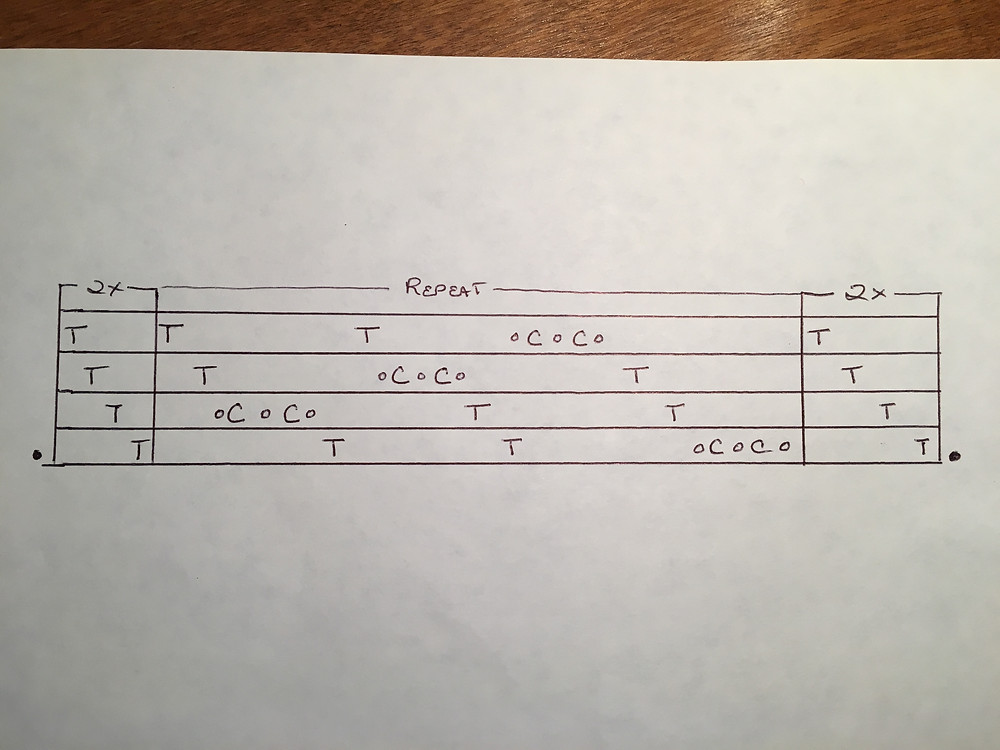 2x REPEAT 2x
T T T oCoCo T
T T oCoCo T T
T oCoCo T T T
T T T oCoCo T